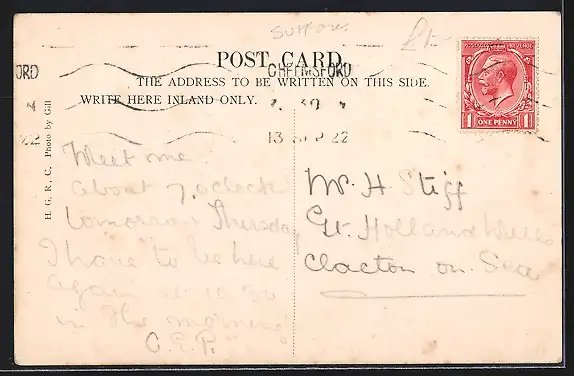 Suffolk
POST CARD.
THE ADDRESS TO BE WRITTEN ON THIS SIDE.
WRITE HERE INLAND ONLY.
CHELMSFORD
13 SEP 22
POSTAGE REVENUE
ONE PENNY
H. G. R. C. Photo by Gill
Meet me
about 7,oclock
tomorrow Thursday
I have to be here
again at 10.30
in the morning
Mr H Stiff
Gt. Holland Mills
Clacton on Sea